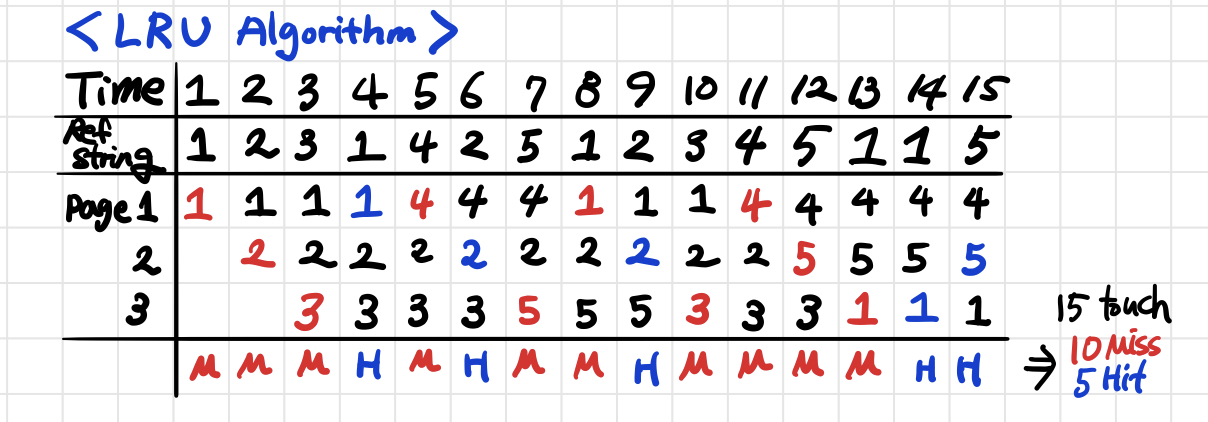 <LRU Algorithm>
Time 1 2 3 4 5 6 7 8 9 10 11 12 13 14 15
Ref string 1 2 3 1 4 2 5 1 2 3 4 5 1 1 5
Page 1 1 1 1 1 4 4 4 1 1 1 4 4 4 4 4
2 2 2 2 2 2 2 2 2 2 2 5 5 5 5
3 3 3 3 3 5 5 5 3 3 3 1 1 1
M M M H M H M M H M M M M H H
15 touch
⇒ 10 Miss
5 Hit